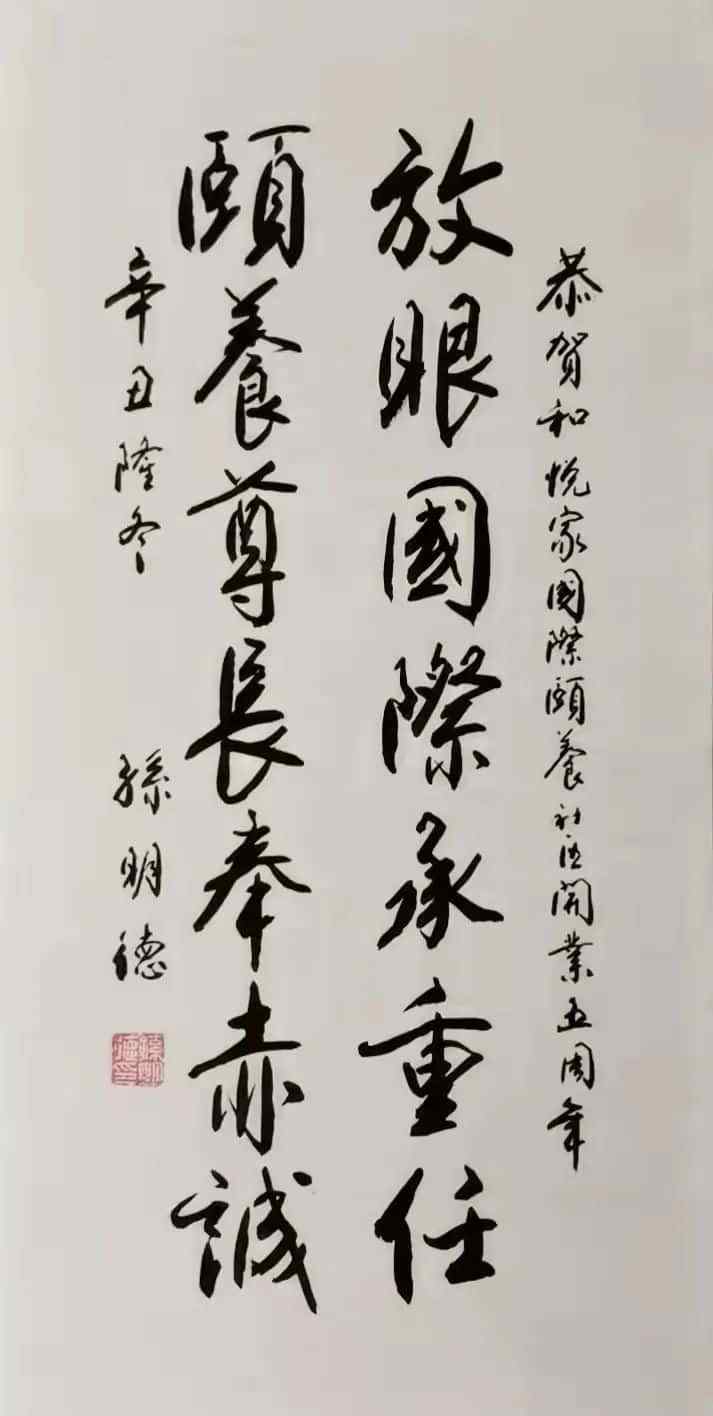 恭贺和悦家國際頤養社區開業五周年
放眼國際承重任
頤養尊長奉赤誠
辛丑隆冬
孫明德